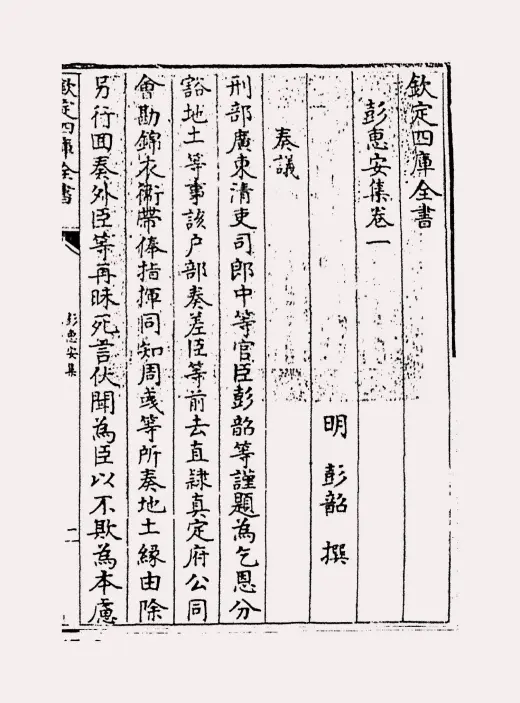 欽定四庫全書
彭惠安集卷一
明 彭韶 撰
奏議
刑部廣東清吏司郎中等官臣彭韶等謹題為乞恩分
豁地土等事該户部奏差臣等前去直隷真定府公同
會勘錦衣衛帶俸指揮同知周彧等所奏地土緣由除
另行回奏外臣等再昧死言伏聞為臣以不欺為本慮
欽定四庫全書
彭惠安集